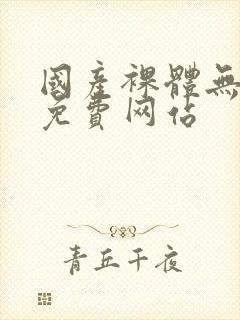 國產裸體無
免費网站
青丘千夜